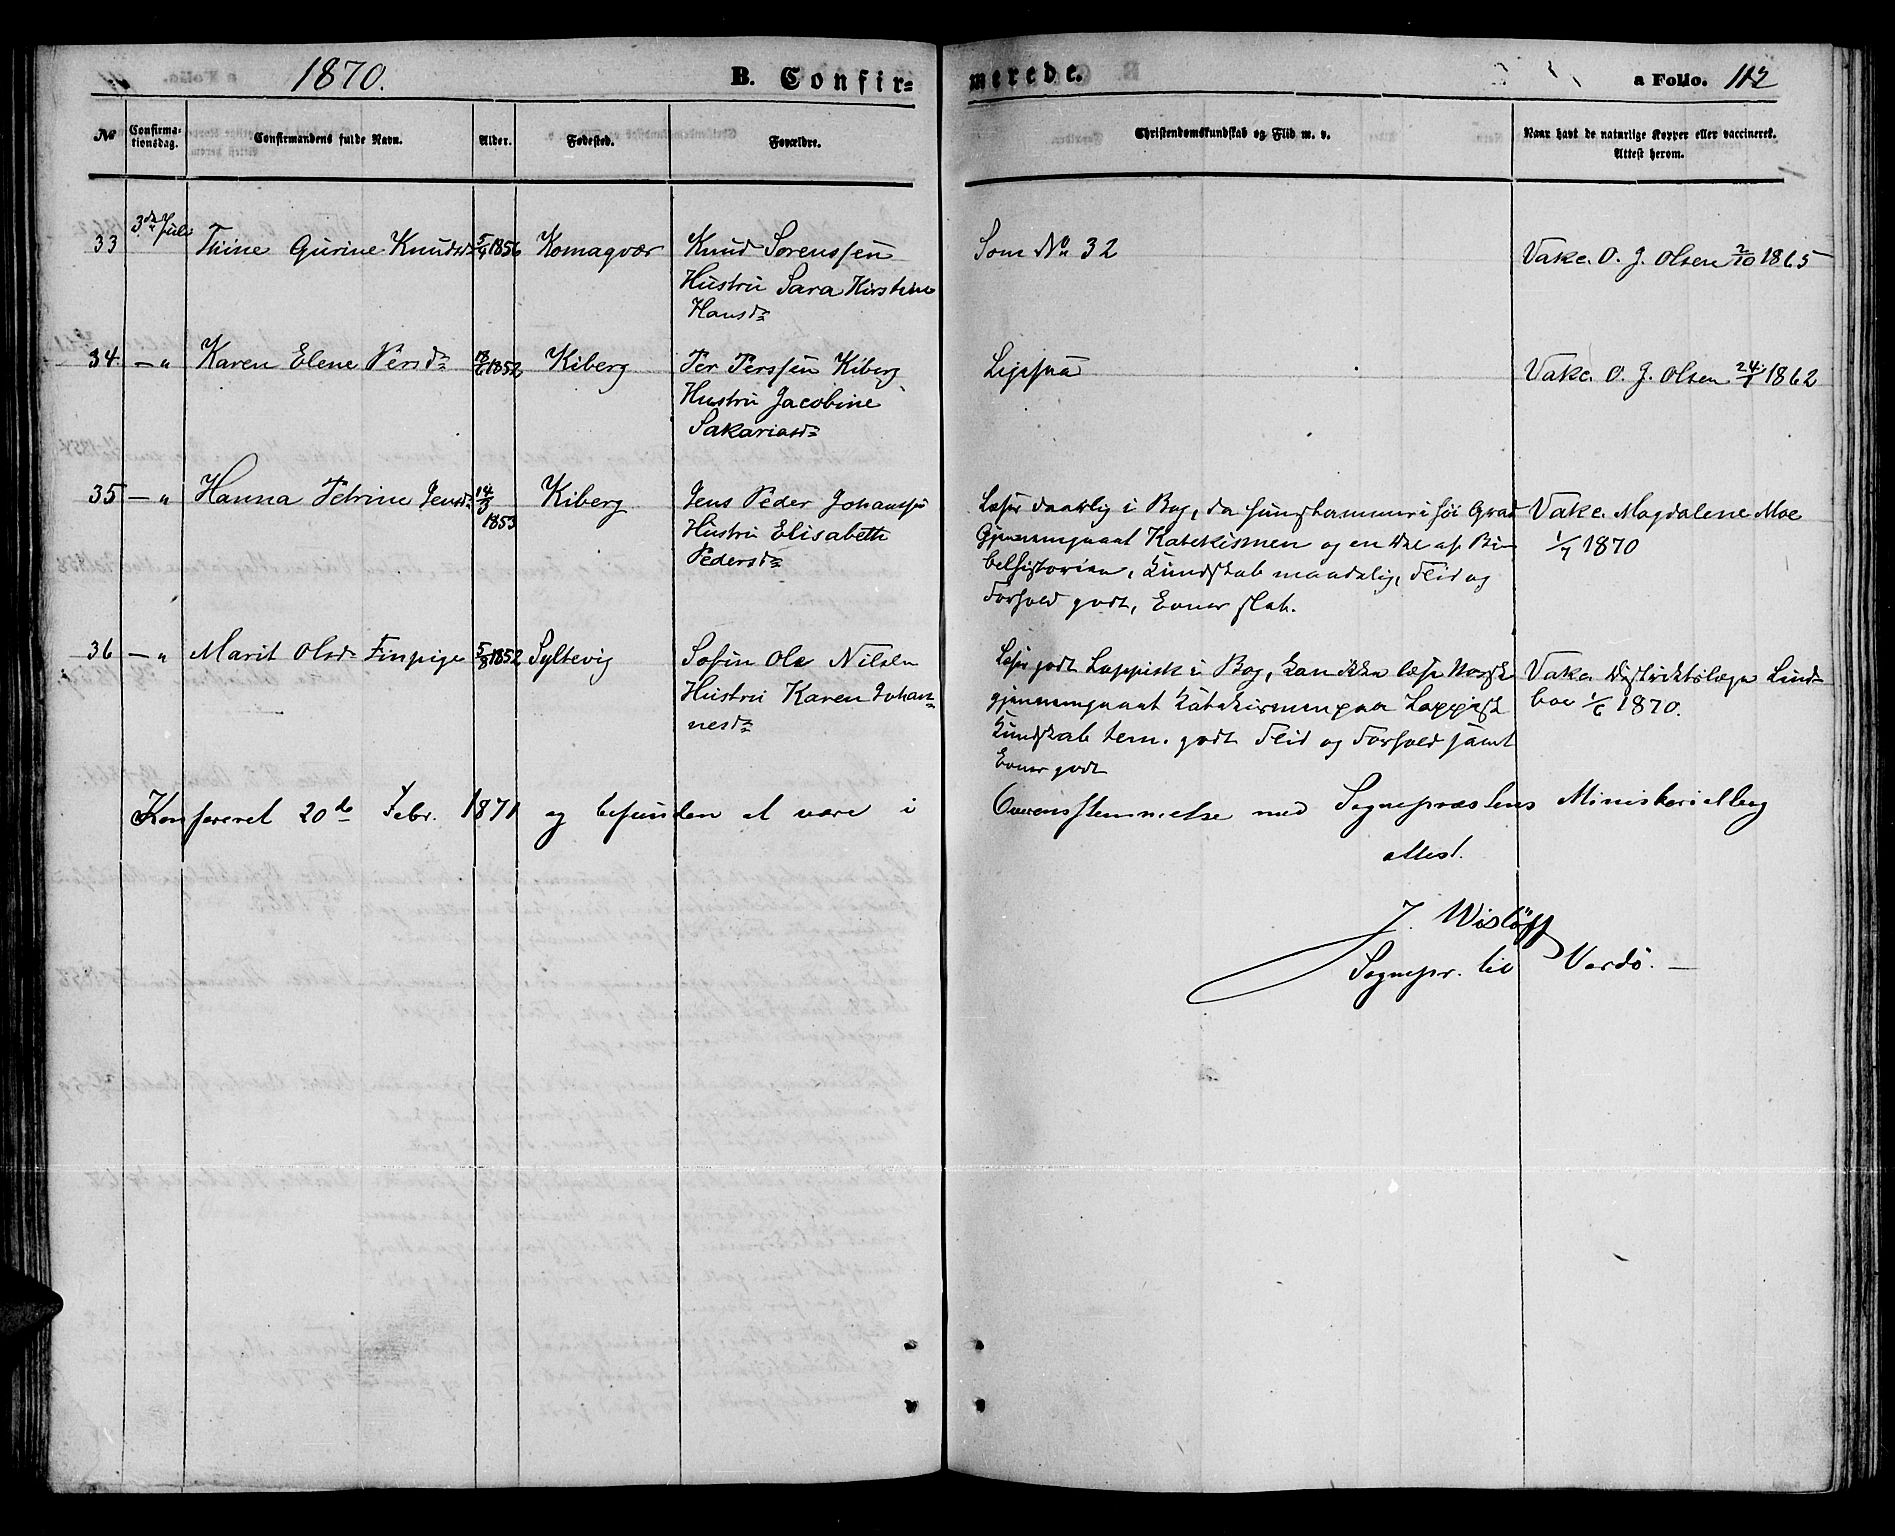 1870.
B. Confir=
merede.
a Folio. 112
No
Confirma-
tionsdag.
Confirmandens fulde Navn.
Alder.
Fødested.
Forældre.
Christendomskundskab og Flid m. v.
Naar havt de naturlige Kopper eller vaccineret.
Attest herom.
33 3de Juli Thine Gurine Knudsd. 1856 Komagvær Knud Sørenssen Som No 32 Vakc. O. J. Olsen 2/10 1865
Hustru Sara Kirstine
Hansd.
34. — „ Karen Elene Persd. 1852 Kiberg Per Perssen Kiberg Ligesaa Vakc. O. J. Olsen 24/1 1862
Hustru Jacobine
Sakariasd.
35 — „ Hanna Petrine Jensd. 14/3 1853 Kiberg Jens Peder Johanssen Læser daarlig i Bog, da hun stammer i høi Grad Vakc. Magdalene Moe
Hustru Elisabeth Gjennemgaaet Katekismen og en Del af Bi- 1/7 1870
Pedersd. belhistorien, Kundskab maadelig, Flid og
Forhold godt, Evner slet.
36 — „ Marit Olsd. Finpige 5/8 1852 Syltevig Søfin Ole Nilsen Læser godt Lappisk i Bog, kan ikke læse Norsk Vakc. Distriktslæge Lind-
Hustru Karen Johan- gjennemgaaet Katekismen paa Lappisk boe 1/6 1870.
nesd. Kundskab tem. godt Flid og Forhold samt
Evner godt
Konfereret 20de Febr. 1871 og befunden at være i Overensstemmelse med Sognepræstens Ministerialbog
attest.
J. Wisløff
Sognepr. til Vardø. —